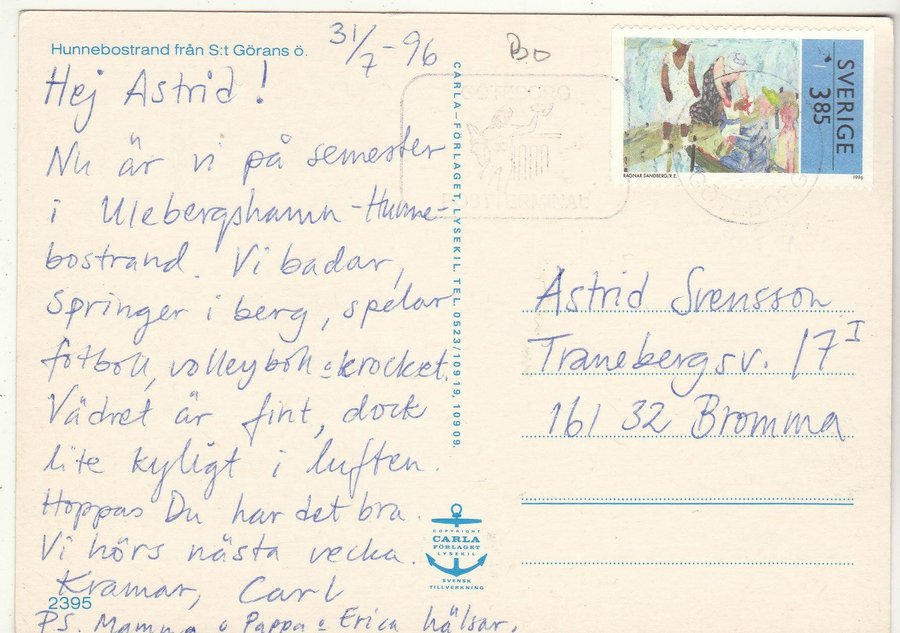 Hunnebostrand från S:t Görans ö.
31/7 -96
Bo
Hej Astrid!
Nu är vi på semester
i Ulebergshamn-Hunne-
bostrand. Vi badar,
springer i berg, spelar
fotboll, volleyboll o krocket.
Vädret är fint, dock
lite kyligt i luften.
Hoppas Du har det bra.
Vi hörs nästa vecka.
Kramar, Carl
2395
PS. Mamma o Pappa o Erica hälsar.
CARLA-FÖRLAGET, LYSEKIL. TEL. 0523/109 19, 109 09.
COPYRIGHT
CARLA
FÖRLAGET
LYSEKIL
SVENSK
TILLVERKNING
SVERIGE
385
RAGNAR SANDBERG/R.E.
1996
Astrid Svensson
Tranebergsv. 17 I
161 32 Bromma